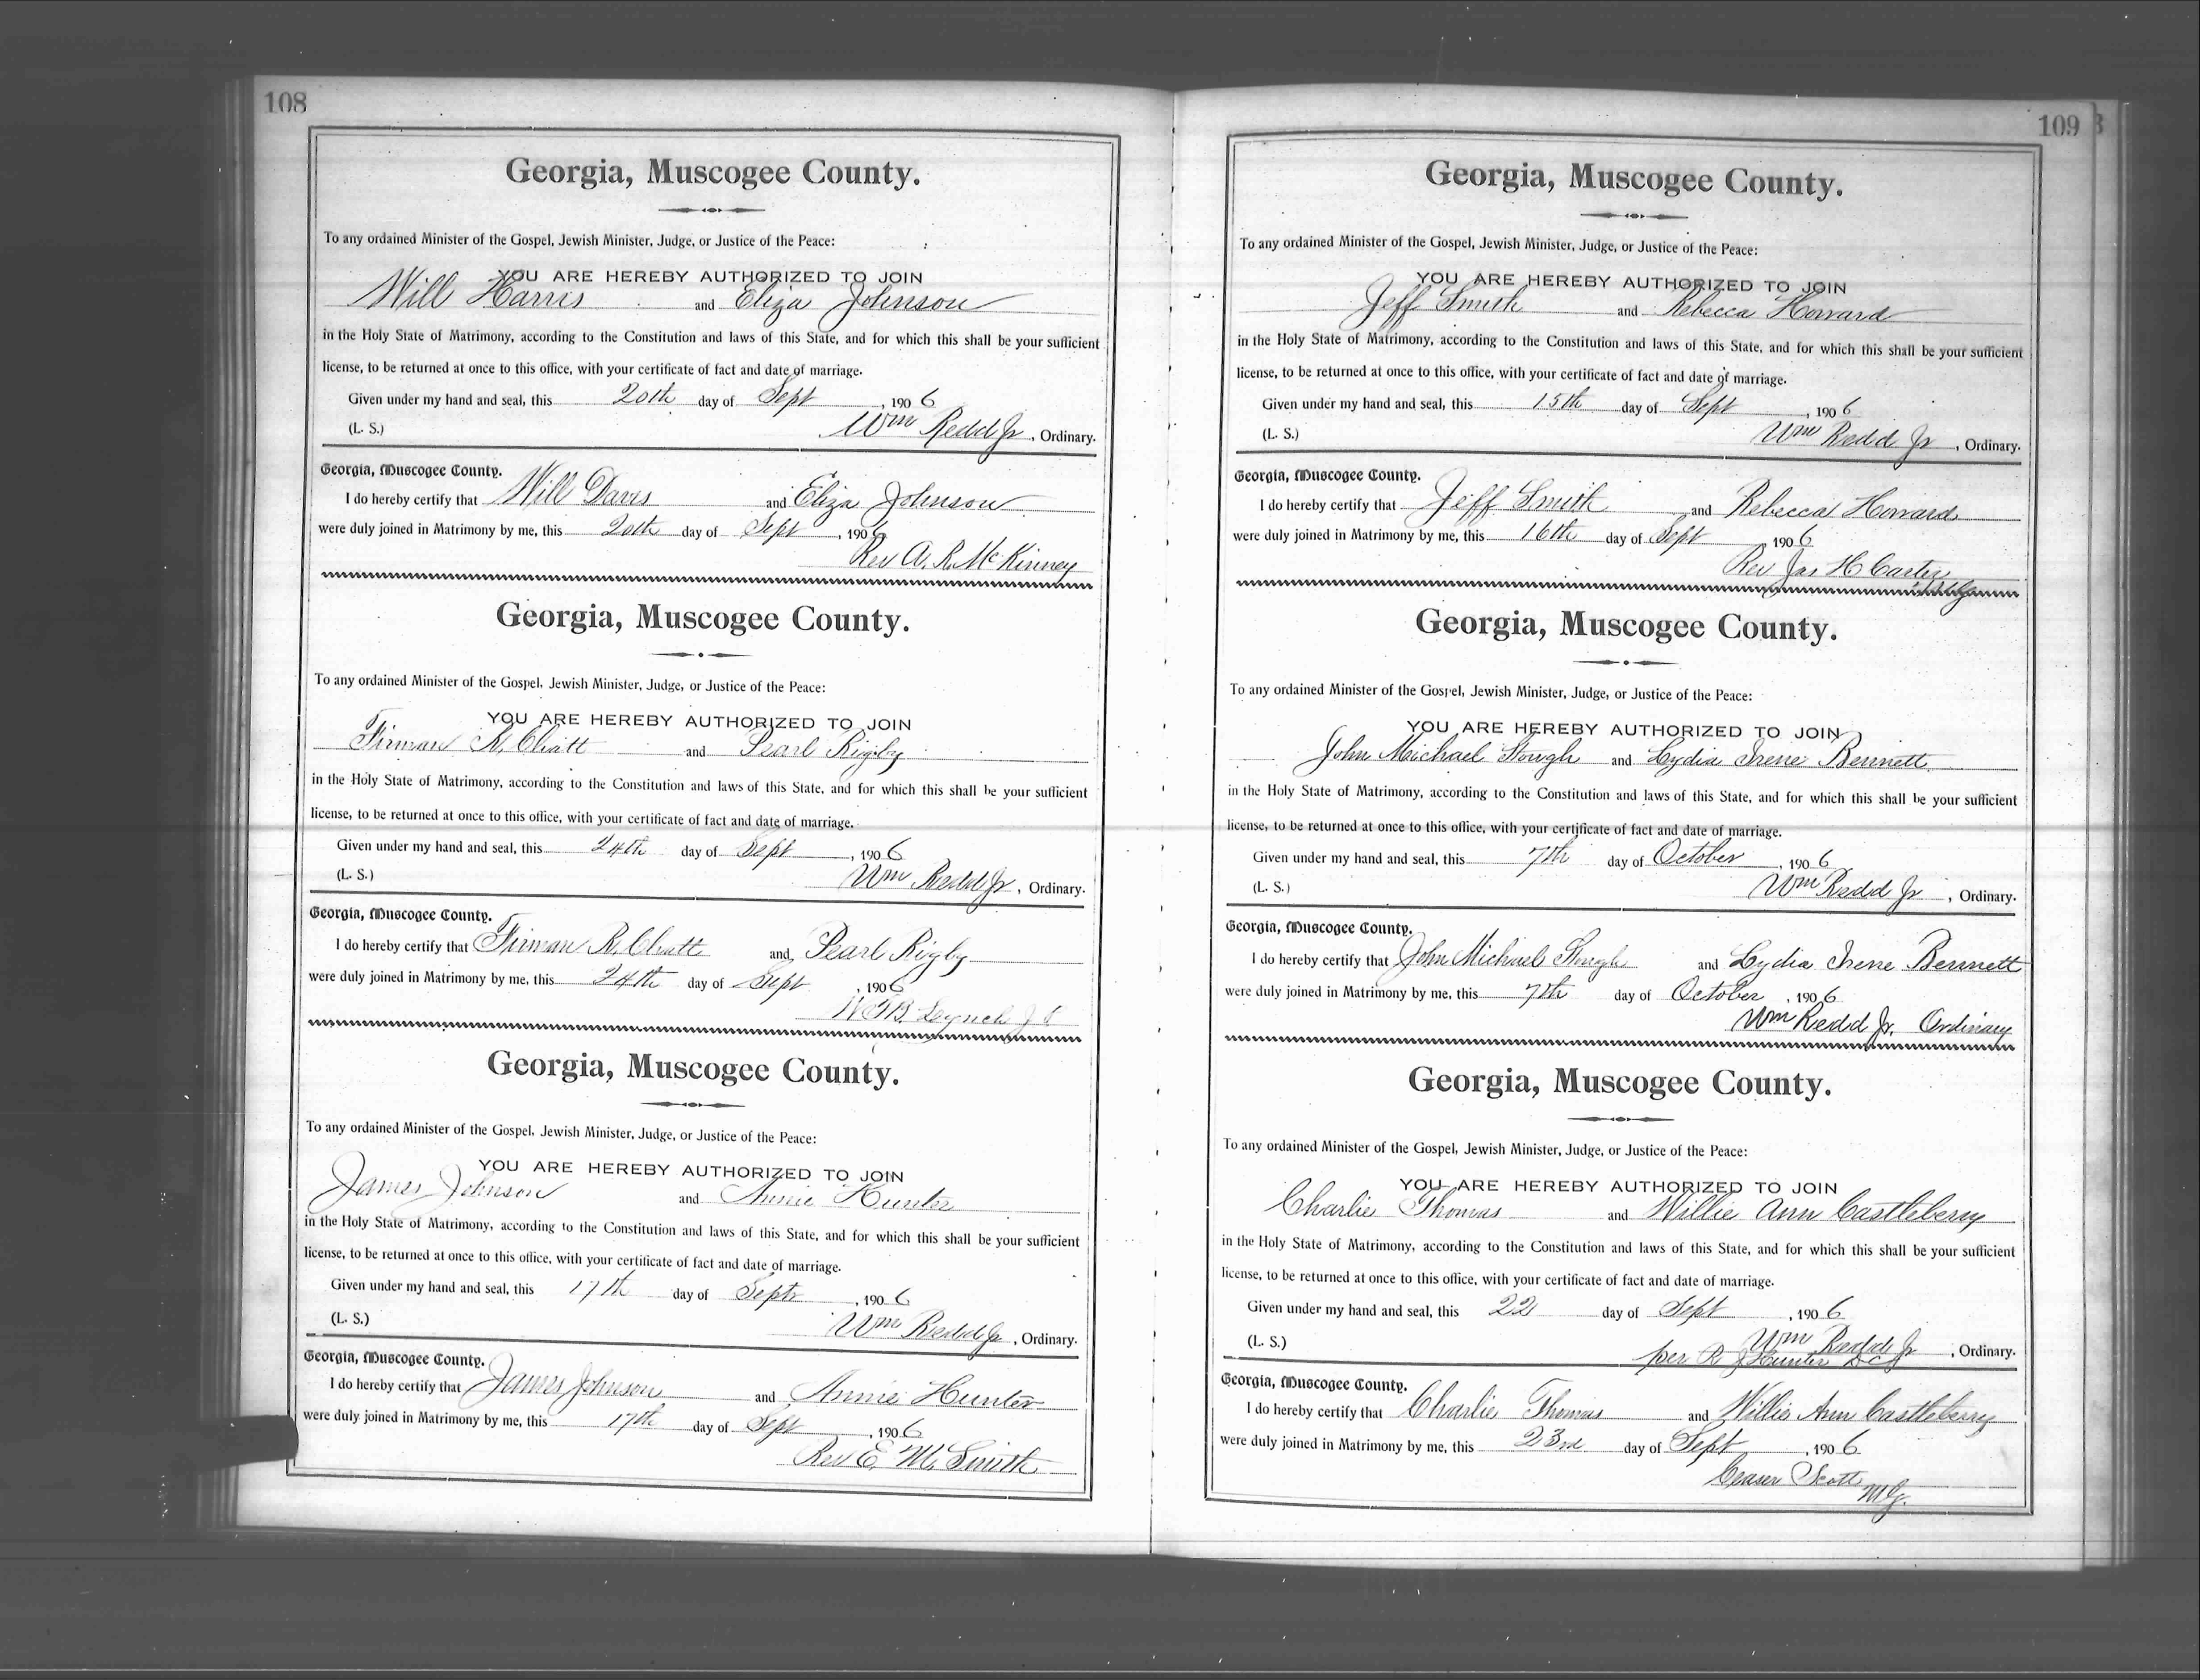 108
Georgia, Muscogee County.
To any ordained Minister of the Gospel, Jewish Minister, Judge, or Justice of the Peace:
YOU ARE HEREBY AUTHORIZED TO JOIN
Will Harris and Eliza Johnson
in the Holy State of Matrimony, according to the Constitution and laws of this State, and for which this shall be your sufficient
license, to be returned at once to this office, with your certificate of fact and date of marriage.
Given under my hand and seal, this 20th day of Sept, 1906
(L. S.) Wm Redd Jr, Ordinary.
Georgia, Muscogee County.
I do hereby certify that Will Davis and Eliza Johnson
were duly joined in Matrimony by me, this 20th day of Sept, 1906
Rev A. R. McKinney
Georgia, Muscogee County.
To any ordained Minister of the Gospel, Jewish Minister, Judge, or Justice of the Peace:
YOU ARE HEREBY AUTHORIZED TO JOIN
Firman R. Chatt and Pearl Rigby
in the Holy State of Matrimony, according to the Constitution and laws of this State, and for which this shall be your sufficient
license, to be returned at once to this office, with your certificate of fact and date of marriage.
Given under my hand and seal, this 24th day of Sept, 1906
(L. S.) Wm Redd Jr, Ordinary.
Georgia, Muscogee County.
I do hereby certify that Firman R. Chatt and Pearl Rigby
were duly joined in Matrimony by me, this 24th day of Sept, 1906
Lynch
Georgia, Muscogee County.
To any ordained Minister of the Gospel, Jewish Minister, Judge, or Justice of the Peace:
YOU ARE HEREBY AUTHORIZED TO JOIN
James Johnson and Annie Hunter
in the Holy State of Matrimony, according to the Constitution and laws of this State, and for which this shall be your sufficient
license, to be returned at once to this office, with your certificate of fact and date of marriage.
Given under my hand and seal, this 17th day of Sept, 1906
(L. S.) Wm Redd Jr, Ordinary.
Georgia, Muscogee County.
I do hereby certify that James Johnson and Annie Hunter
were duly joined in Matrimony by me, this 17th day of Sept, 1906
Rev E. M. Smith
109
Georgia, Muscogee County.
To any ordained Minister of the Gospel, Jewish Minister, Judge, or Justice of the Peace:
YOU ARE HEREBY AUTHORIZED TO JOIN
Jeff Smith and Rebecca Howard
in the Holy State of Matrimony, according to the Constitution and laws of this State, and for which this shall be your sufficient
license, to be returned at once to this office, with your certificate of fact and date of marriage.
Given under my hand and seal, this 15th day of Sept, 1906
(L. S.) Wm Redd Jr, Ordinary.
Georgia, Muscogee County.
I do hereby certify that Jeff Smith and Rebecca Howard
were duly joined in Matrimony by me, this 16th day of Sept, 1906
Rev Jas H Carter
Georgia, Muscogee County.
To any ordained Minister of the Gospel, Jewish Minister, Judge, or Justice of the Peace:
YOU ARE HEREBY AUTHORIZED TO JOIN
John Michael Stough and Lydia Irene Bennett
in the Holy State of Matrimony, according to the Constitution and laws of this State, and for which this shall be your sufficient
license, to be returned at once to this office, with your certificate of fact and date of marriage.
Given under my hand and seal, this 7th day of October, 1906
(L. S.) Wm Redd Jr, Ordinary.
Georgia, Muscogee County.
I do hereby certify that John Michael Stough and Lydia Irene Bennett
were duly joined in Matrimony by me, this 7th day of October, 1906
Wm Redd Jr. Ordinary
Georgia, Muscogee County.
To any ordained Minister of the Gospel, Jewish Minister, Judge, or Justice of the Peace:
YOU ARE HEREBY AUTHORIZED TO JOIN
Charlie Thomas and Willie Ann Castleberry
in the Holy State of Matrimony, according to the Constitution and laws of this State, and for which this shall be your sufficient
license, to be returned at once to this office, with your certificate of fact and date of marriage.
Given under my hand and seal, this 22 day of Sept, 1906
(L. S.) Wm Redd Jr, Ordinary.
per R J Hunter DC
Georgia, Muscogee County.
I do hereby certify that Charlie Thomas and Willie Ann Castleberry
were duly joined in Matrimony by me, this 23rd day of Sept, 1906
Ceaser Scott
M.G.